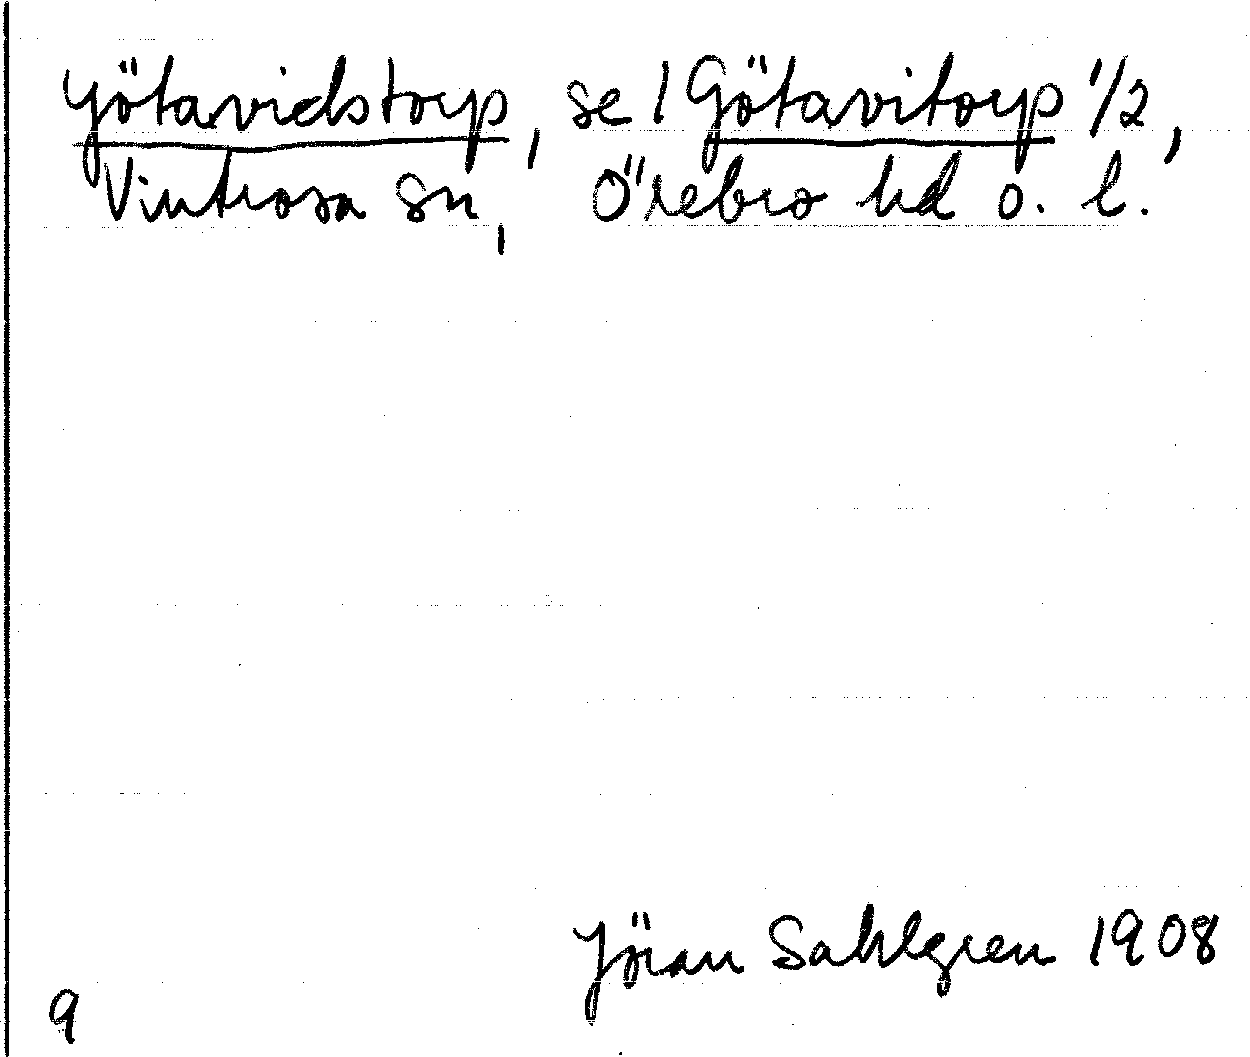 Götavidstorp, se 1 Götavitorp 1/2,
Vintrosa sn, Örebro hd ö. l.
Jöran Sahlgren 1908
9